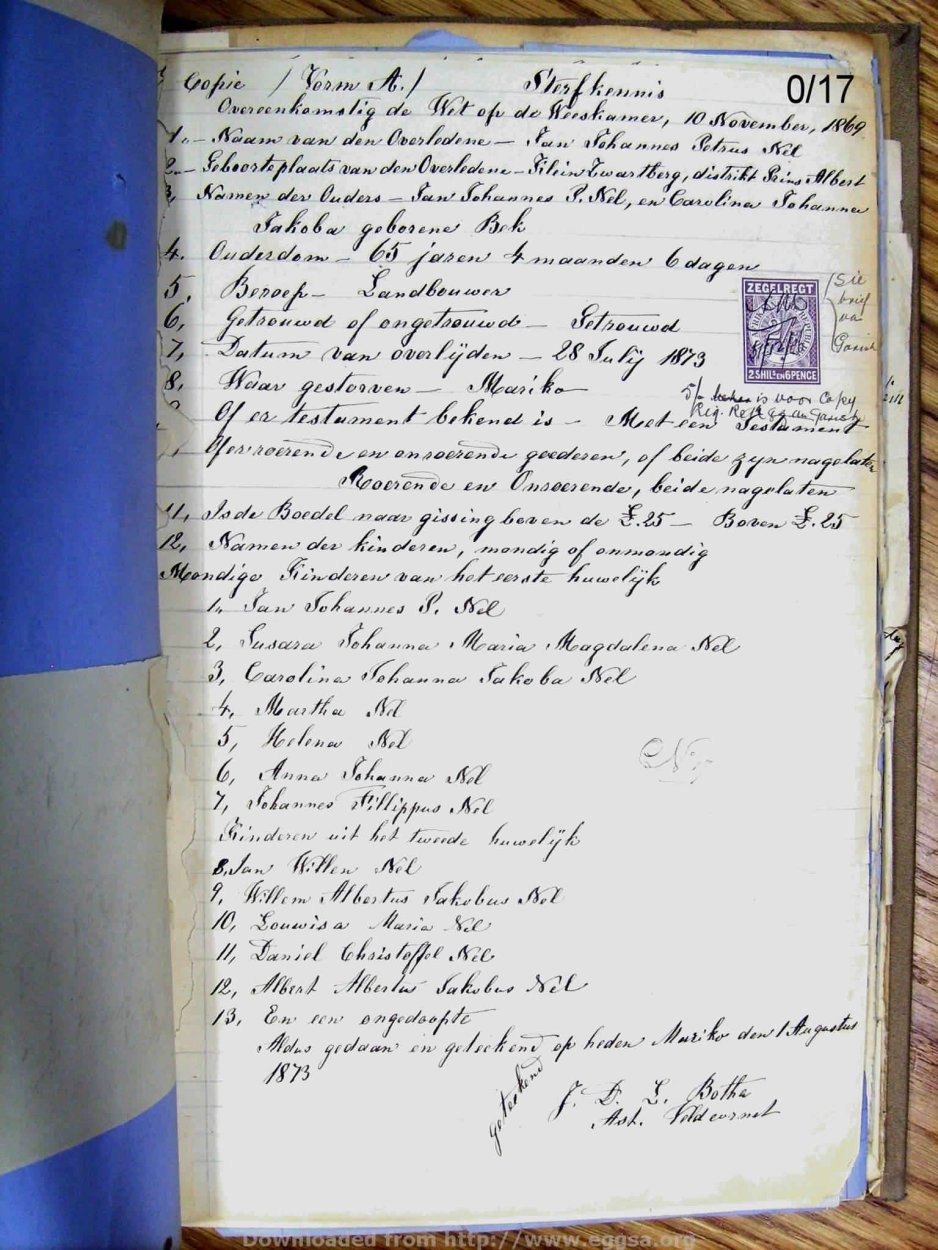 Copie / Vorm A. / Sterfkennis
0/17
Overeenkomstig de Wet op de Weeskamer, 10 November, 1869
1. - Naam van den Overledene - Jan Johannes Petrus Nel
2. - Geboorteplaats van den Overledene - Klein Zwartberg, distrikt Prins Albert
3, Namen der Ouders - Jan Johannes P. Nel, en Carolina Johanna
Jakoba geborene Bek
4. Ouderdom - 65 jaren 4 maanden 6 dagen
5, Beroep - Landbouwer
6, Getrouwd of ongetrouwd - Getrouwd
7, Datum van overlijden - 28 July 1873
8, Waar gestorven - Mariko
ZEGELREGT
2 SHILS EN 6 PENCE
Sie
brief
va
5/- is voor Copy
9 Of er testament bekend is - Met een Testament
Of er roerende en onroerende goederen, of beide zyn nagelaten
Roerende en Onroerende, beide nagelaten
11, Is de Boedel naar gissing boven de £.25 - Boven £.25
12, Namen der kinderen, mondig of onmondig
Mondige Kinderen van het eerste huwelijk
1, Jan Johannes P. Nel
2, Susara Johanna Maria Magdalena Nel
3, Carolina Johanna Jakoba Nel
4, Martha Nel
5, Helena Nel
6, Anna Johanna Nel
7, Johannes Fillippus Nel
Kinderen uit het tweede huwelijk
8, Jan Willem Nel
9, Willem Albertus Jakobus Nel
10, Louwisa Maria Nel
11, Daniel Christoffel Nel
12, Albert Albertus Jakobus Nel
13, En een ongedoopte
Aldus gedaan en geteekend op heden Mariko den 1 Augustus
1873
geteekend
J. D. L. Botha
Ast. Veldcornet
Downloaded from http://www.eggsa.org